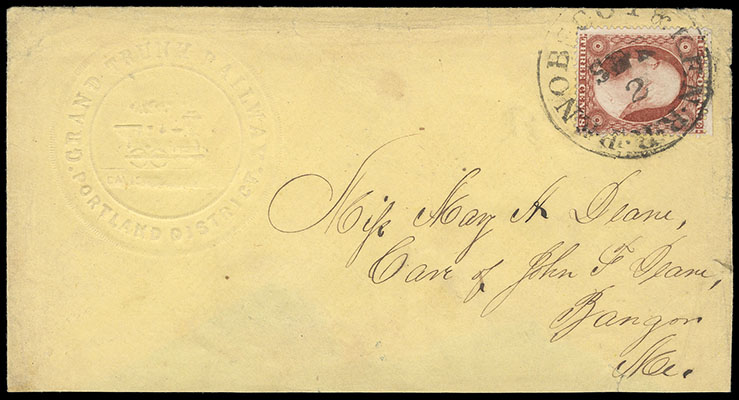 GRAND TRUNK RAILWAY
PORTLAND DISTRICT
THREE CENTS
2
Miss Mary A Deane,
Care of John F Deane,
Bangor
Me.